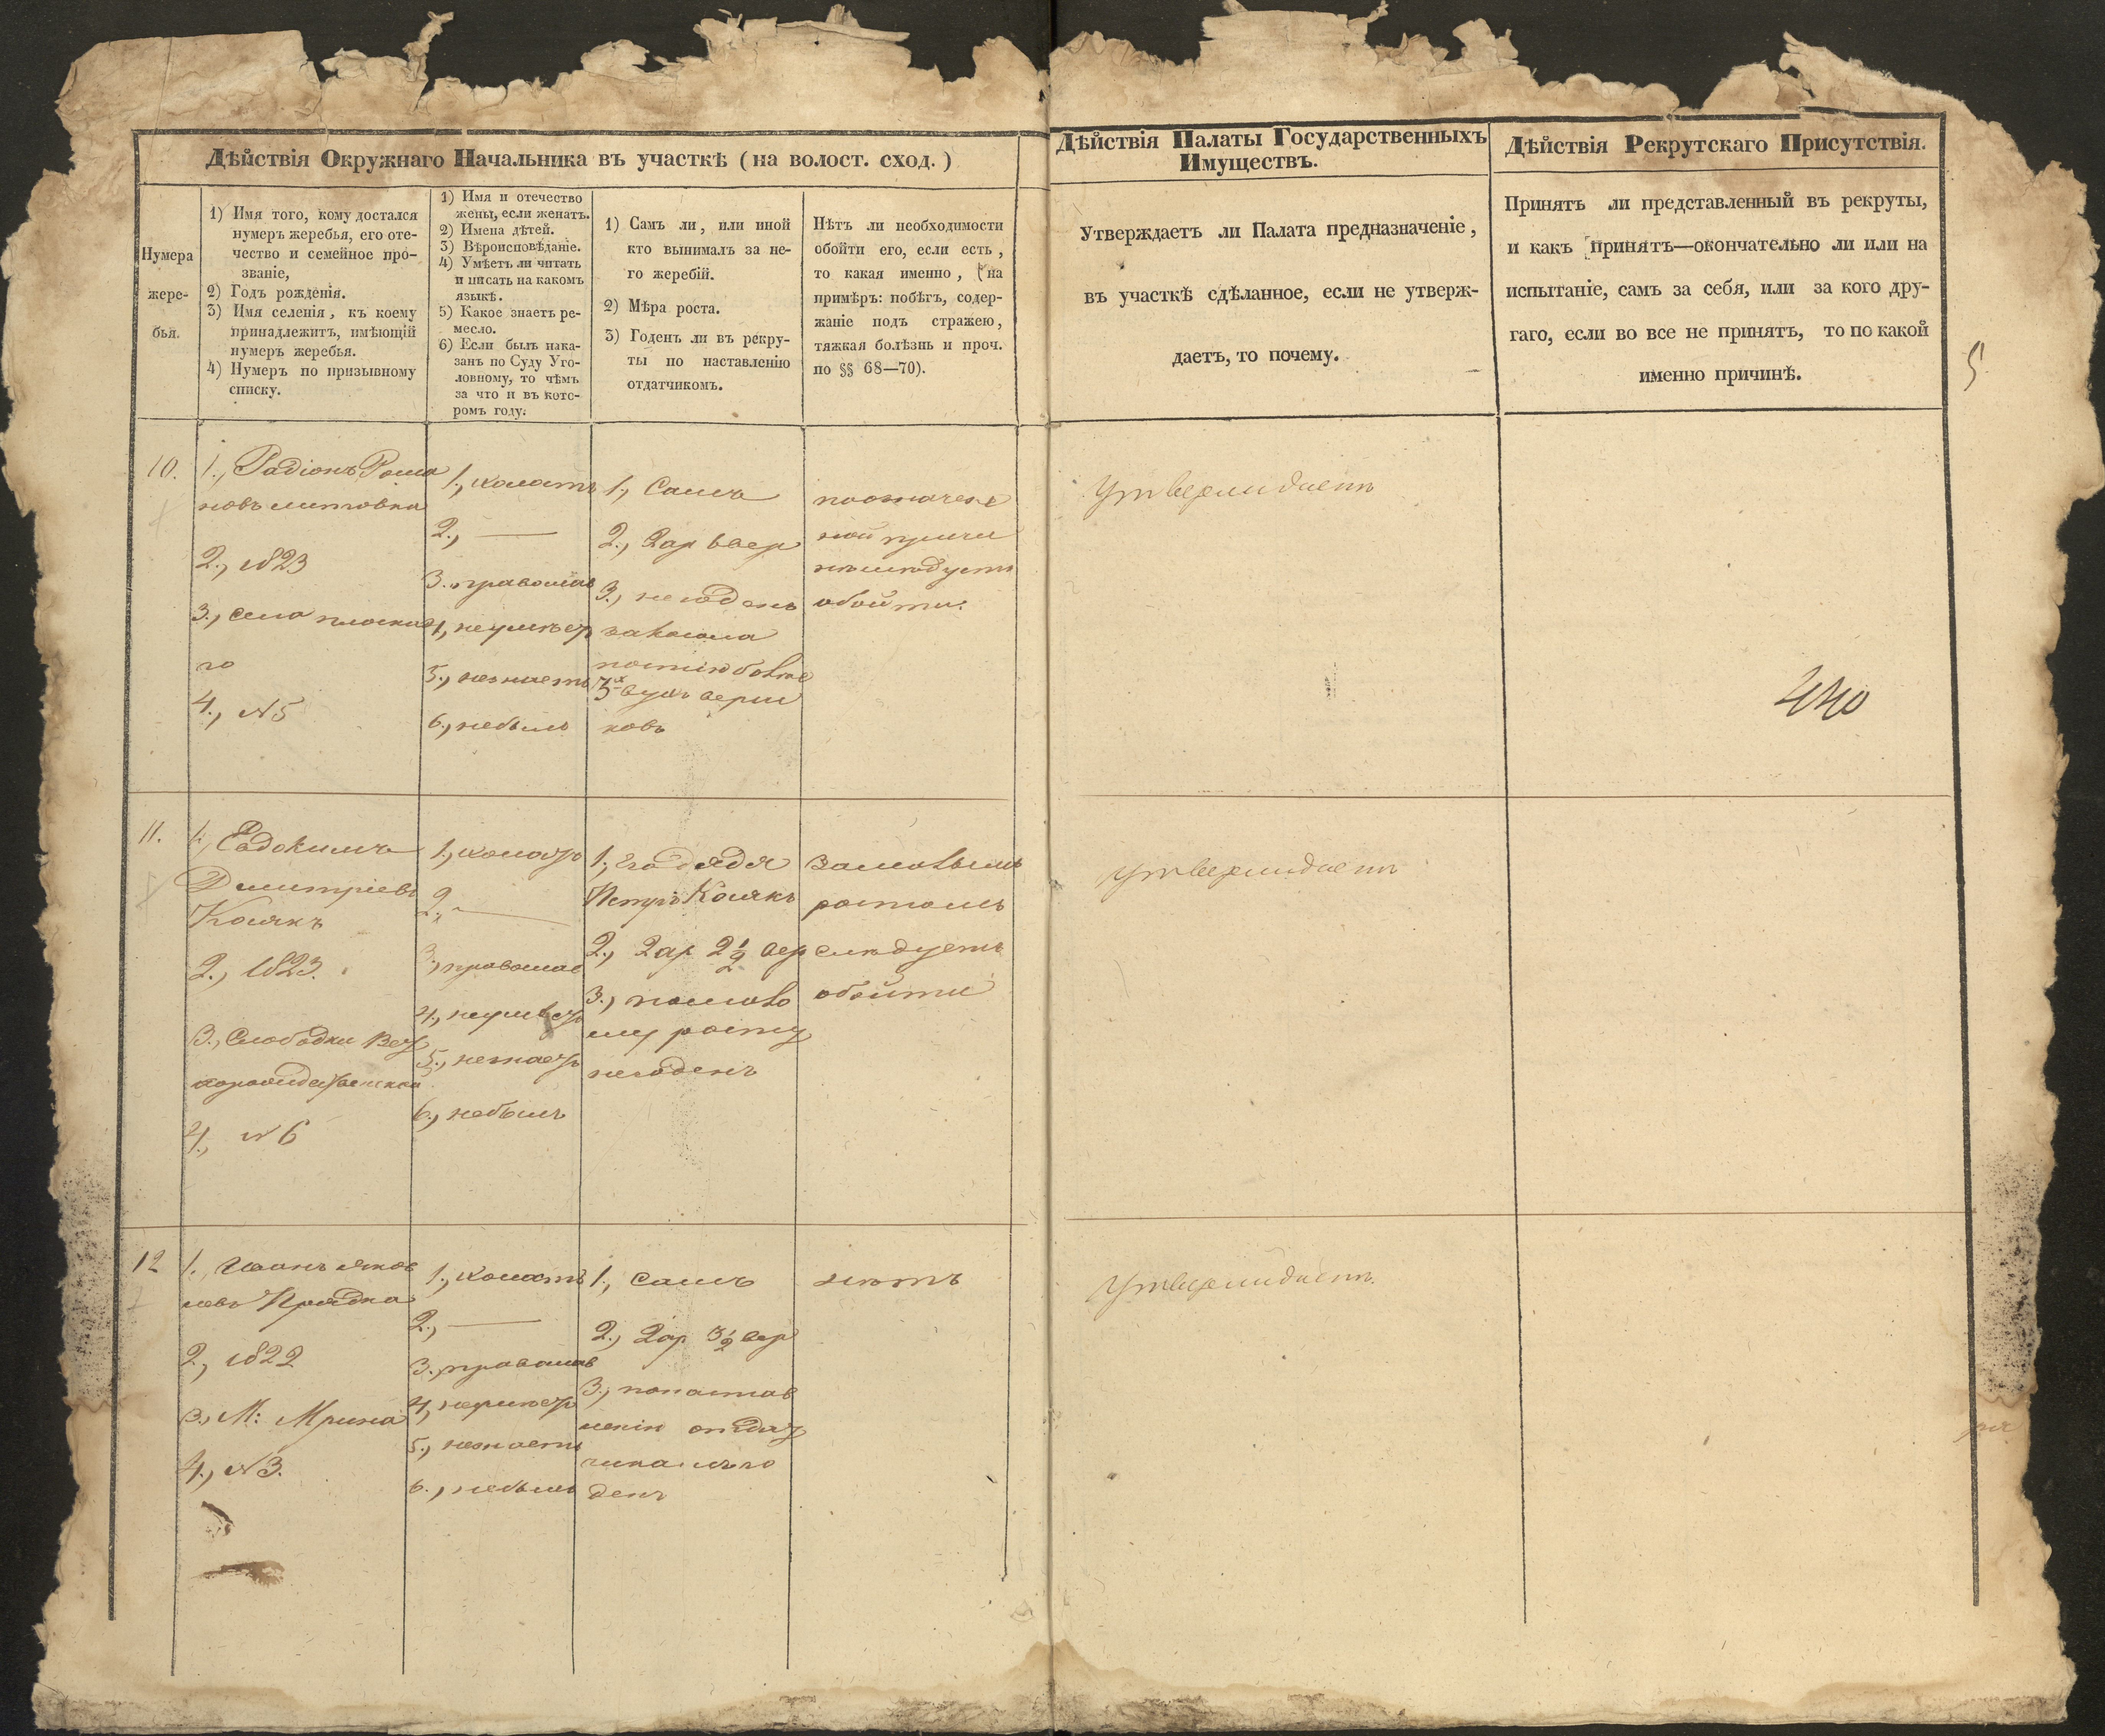 Дѣйствія Окружнаго Начальника въ участкѣ (на волост. сход.)
Нумера
жере-
бья.
1) Имя того, кому достался
нумеръ жеребья, его оте-
чество и семейное про-
званіе,
2) Годъ рожденія.
3) Имя селенія, къ коему
принадлежитъ, имѣющій
нумеръ жеребья.
4) Нумеръ по призывному
списку.
1) Имя и отечество
жены, если женатъ.
2) Имена дѣтей.
3) Вѣроисповѣданіе.
4) Умѣетъ ли читать
и писать на какомъ
языкѣ.
5) Какое знаетъ ре-
месло.
6) Если былъ нака-
занъ по Суду Уго-
ловному, то чѣмъ
за что и въ кото-
ромъ году.
1) Самъ ли, или иной
кто вынималъ за не-
го жеребій.
2) Мѣра роста.
3) Годенъ ли въ рекру-
ты по наставленію
отдатчикомъ.
Нѣтъ ли необходимости
обойти его, если есть,
то какая именно, (на
примѣръ: побѣгъ, содер-
жаніе подъ стражею,
тяжкая болѣзнь и проч.
по §§ 68—70).
Дѣйствія Палаты Государственныхъ
Имуществъ.
Утверждаетъ ли Палата предназначеніе,
въ участкѣ сдѣланное, если не утверж-
даетъ, то почему.
Дѣйствія Рекрутскаго Присутствія.
Принятъ ли представленный въ рекруты,
и какъ принятъ—окончательно ли или на
испытаніе, самъ за себя, или за кого дру-
гаго, если во все не принятъ, то по какой
именно причинѣ.
5
10.
1., Радіонъ Рома
новъ Литовка
2., 1823
3., села плоска
го
4., N 5
1., холостъ
2., —
3., православ
4., неумѣетъ
5., незнаетъ
6., небылъ
1., Самъ
2., 2 ар вер
3., негоденъ
вершковъ
обойти.
Утверждаетъ
440
11.
1., Евдокимъ
Дмитріевъ
Косякъ
2., 1823.
3., Слободки
4., N 6
1., холостъ
2., —
3., православ
4., неумѣетъ
5., незнаетъ
6., небылъ
1., дядя
Петръ Косякъ
2., 2 ар 2 1/2 вер
3., помало
му росту
негоденъ
замалымъ
ростомъ
слѣдуетъ
обойти
Утверждаетъ
12
1., Иванъ Яков
левъ Прядка
2., 1822
3., М: Мрина
4., N 3.
1., холостъ
2., —
3., православ
4., неумѣетъ
5., незнаетъ
6., небылъ
1., самъ
2., 2 ар 3 1/2 вер
3., понастав
ленію отдат
чикамъ го
денъ
нѣтъ
Утверждаетъ.